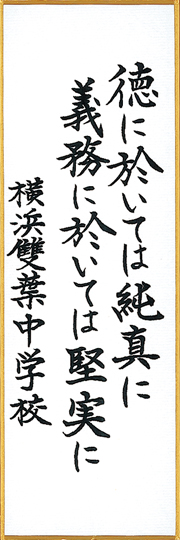 徳に於いては純真に
義務に於いては堅実に
横浜雙葉中学校